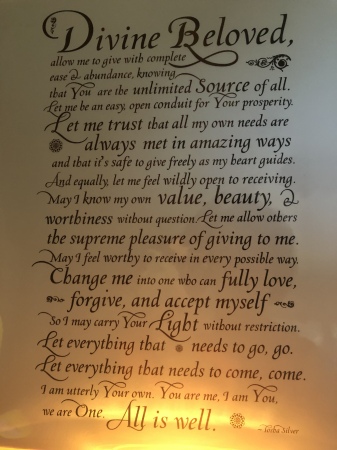 Divine Beloved,
allow me to give with complete
ease & abundance, knowing
that You are the unlimited Source of all.
Let me be an easy, open conduit for Your prosperity.
Let me trust that all my own needs are
always met in amazing ways
and that it's safe to give freely as my heart guides.
And equally, let me feel wildly open to receiving.
May I know my own value, beauty, &
worthiness without question. Let me allow others
the supreme pleasure of giving to me.
May I feel worthy to receive in every possible way.
Change me into one who can fully love,
forgive, and accept myself
So I may carry Your Light without restriction.
Let everything that needs to go, go.
Let everything that needs to come, come.
I am utterly Your own. You are me, I am You,
we are One. All is well.
~ Tosha Silver